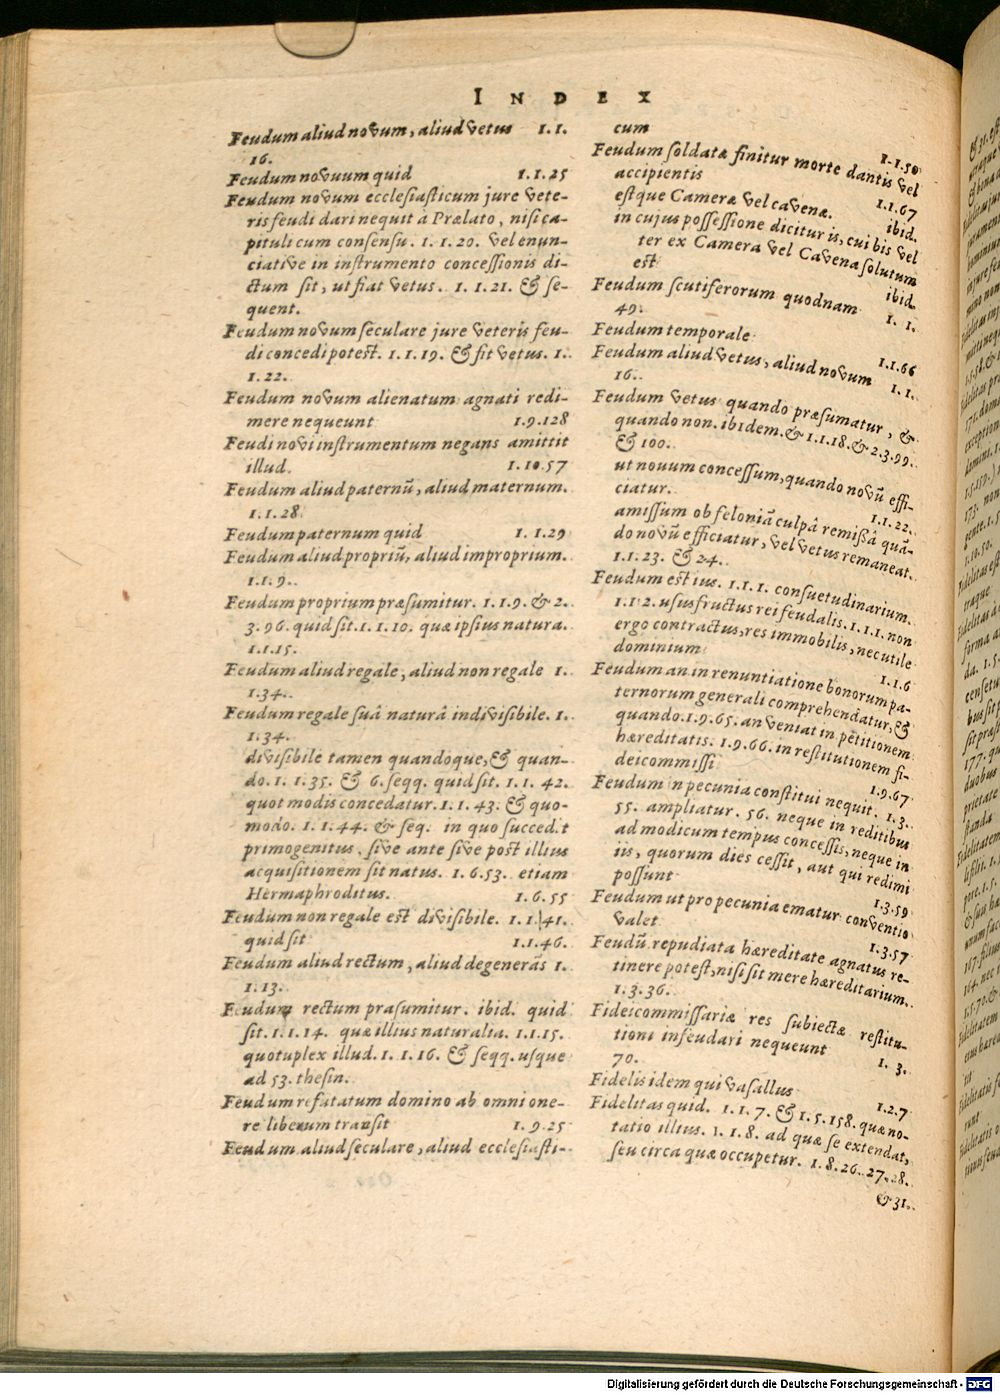 INDEX
Feudum aliud novum, aliud vetus 1.1.
16.
Feudum novuum quid 1.1.25
Feudum novum ecclesiasticum jure vete-
ris feudi dari nequit à Prælato, nisi ca-
pituli cum consensu. 1.1.20. vel enun-
ciative in instrumento concessionis di-
ctum sit, ut fiat vetus. 1.1.21. & se-
quent.
Feudum novum seculare jure veteris feu-
di concedi potest. 1.1.19. & fit vetus. 1.
1.22.
Feudum novum alienatum agnati redi-
mere nequeunt 1.9.128
Feudi novi instrumentum negans amittit
illud. 1.10.57
Feudum aliud paternũ, aliud maternum.
1.1.28
Feudum paternum quid 1.1.29
Feudum aliud propriũ, aliud improprium.
1.1.9.
Feudum proprium præsumitur. 1.1.9. & 2.
3.96. quid sit. 1.1.10. quæ ipsius natura.
1.1.15.
Feudum aliud regale, aliud non regale 1.
1.34.
Feudum regale suâ naturâ indivisibile. 1.
1.34.
divisibile tamen quandoque, & quan-
do. 1.1.35. & 6. seqq. quid sit. 1.1.42.
quot modis concedatur. 1.1.43. & quo-
modo. 1.1.44. & seq. in quo succedit
primogenitus, sive ante sive post illius
acquisitionem sit natus. 1.6.53. etiam
Hermaphroditus. 1.6.55
Feudum non regale est divisibile. 1.1.41.
quid sit 1.1.46.
Feudum aliud rectum, aliud degenerãs 1.
1.13.
Feudum rectum præsumitur. ibid. quid
sit. 1.1.14. quæ illius naturalia. 1.1.15.
quotuplex illud. 1.1.16. & seqq. usque
ad 53. thesin.
Feudum refutatum domino ab omni one-
re liberum transit 1.9.25
Feudum aliud seculare, aliud ecclesiasti-
cum 1.1.50
Feudum soldatæ finitur morte dantis vel
accipientis 1.1.67
estque Cameræ vel cavenæ. ibid.
in cujus possessione dicitur is, cui bis vel
ter ex Camera vel Cavena solutum
est ibid.
Feudum scutiferorum quodnam 1.1.
49.
Feudum temporale 1.1.66
Feudum aliud vetus, aliud novum 1.1.
16.
Feudum vetus quando præsumatur, &
quando non. ibidem. & 1.1.18. & 2.3.99.
& 100.
ut novum concessum, quando novũ effi-
ciatur. 1.1.22.
amissum ob feloniã culpâ remissâ quã-
do novũ efficiatur, vel vetus remaneat.
1.1.23. & 24.
Feudum est ius. 1.1.1. consuetudinarium.
1.1.2. ususfructus rei feudalis. 1.1.1. non
ergo contractus, res immobilis, nec utile
dominium 1.1.6
Feudum an in renuntiatione bonorum pa-
ternorum generali comprehendatur, &
quando. 1.9.65. an veniat in petitionem
hæreditatis. 1.9.66. in restitutionem fi-
deicommissi 1.9.67
Feudum in pecunia constitui nequit. 1.3.
55. ampliatur. 56. neque in reditibus
ad modicum tempus concessis, neque in
iis, quorum dies cessit, aut qui redimi
possunt 1.3.59
Feudum ut pro pecunia ematur conventio
valet 1.3.57
Feudũ repudiata hæreditate agnatus re-
tinere potest, nisi sit mere hæreditarium.
1.3.36.
Fideicommissariæ res subiectæ restitu-
tioni infeudari nequeunt 1.3.
70.
Fidelis idem qui vasallus 1.2.7
Fidelitas quid. 1.1.7. & 1.5.158. quæ no-
tatio illius. 1.1.8. ad quæ se extendat,
seu circa quæ occupetur. 1.8.26.27.28.
& 31.
Digitalisierung gefördert durch die Deutsche Forschungsgemeinschaft - DFG